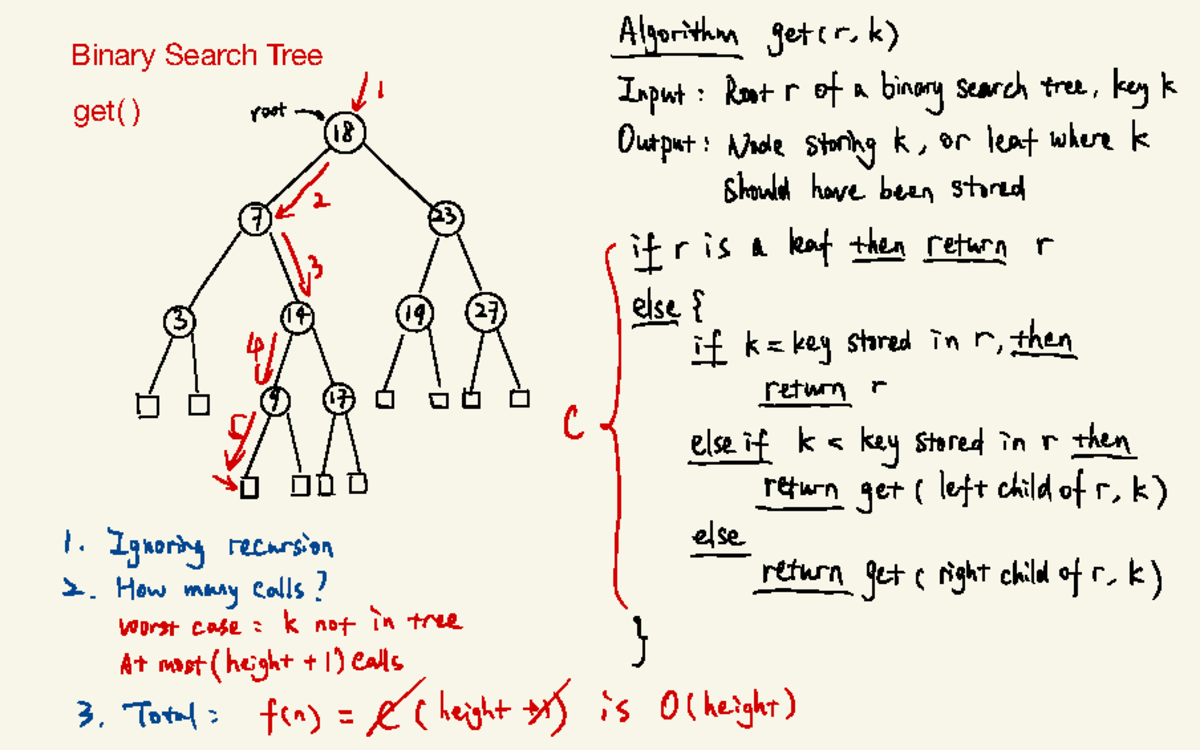 Binary Search Tree
get()
root
1
18
2
7
23
3
3
14
19
27
4
9
17
5
Algorithm get(r, k)
Input: Root r of a binary search tree, key k
Output: Node storing k, or leaf where k
should have been stored
if r is a leaf then return r
else {
if k = key stored in r, then
return r
else if k < key stored in r then
return get ( left child of r, k)
else
return get ( right child of r, k)
}
C
1. Ignoring recursion
2. How many calls?
worst case = k not in tree
At most (height + 1) calls
3. Total: f(n) = c (height + 1) is O(height)